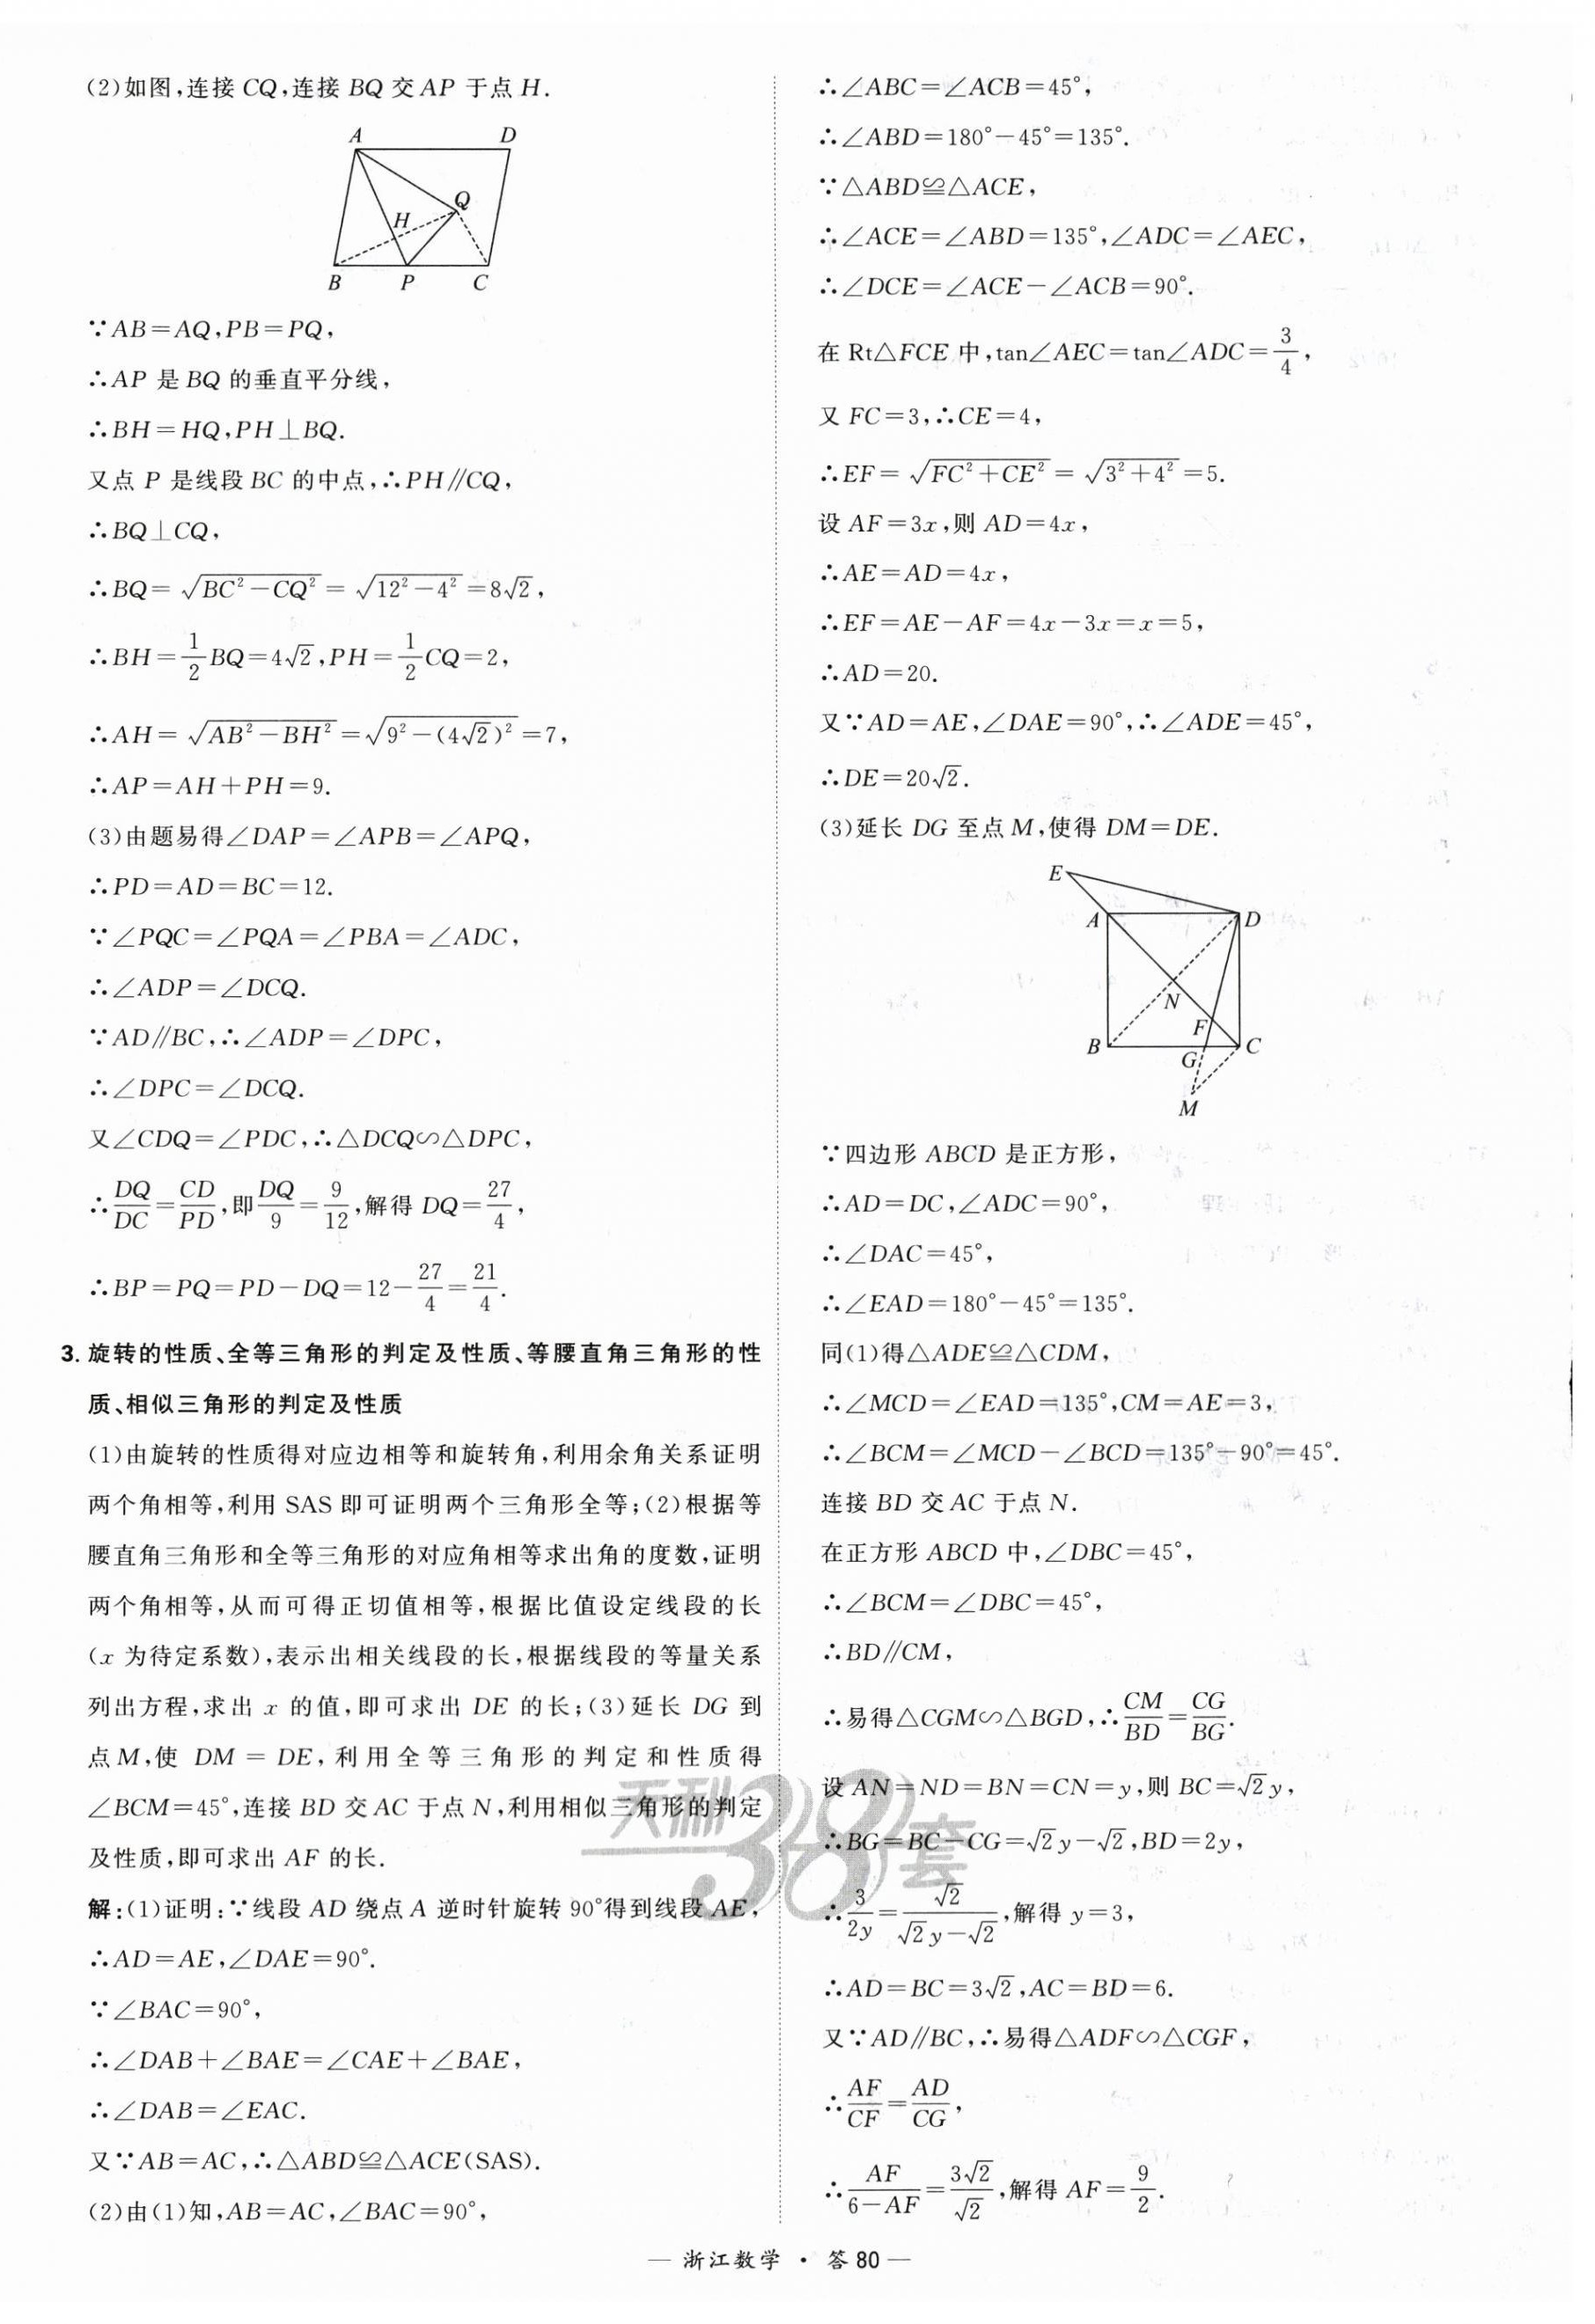 (2)如图,连接 CQ,连接 BQ 交 AP 于点 H.
A D
Q
H
B P C
∵AB=AQ,PB=PQ,
∴AP 是 BQ 的垂直平分线,
∴BH=HQ,PH⊥BQ.
又点 P 是线段 BC 的中点,∴PH∥CQ,
∴BQ⊥CQ,
∴BQ=√(BC²-CQ²)=√(12²-4²)=8√2,
∴BH=1/2BQ=4√2,PH=1/2CQ=2,
∴AH=√(AB²-BH²)=√(9²-(4√2)²)=7,
∴AP=AH+PH=9.
(3)由题易得∠DAP=∠APB=∠APQ,
∴PD=AD=BC=12.
∵∠PQC=∠PQA=∠PBA=∠ADC,
∴∠ADP=∠DCQ.
∵AD∥BC,∴∠ADP=∠DPC,
∴∠DPC=∠DCQ.
又∠CDQ=∠PDC,∴△DCQ∽△DPC,
∴DQ/DC=CD/PD,即DQ/9=9/12,解得 DQ=27/4,
∴BP=PQ=PD-DQ=12-27/4=21/4.
3. 旋转的性质、全等三角形的判定及性质、等腰直角三角形的性
质、相似三角形的判定及性质
(1)由旋转的性质得对应边相等和旋转角,利用余角关系证明
两个角相等,利用 SAS 即可证明两个三角形全等;(2)根据等
腰直角三角形和全等三角形的对应角相等求出角的度数,证明
两个角相等,从而可得正切值相等,根据比值设定线段的长
(x 为待定系数),表示出相关线段的长,根据线段的等量关系
列出方程,求出 x 的值,即可求出 DE 的长;(3)延长 DG 到
点 M,使 DM = DE,利用全等三角形的判定和性质得
∠BCM=45°,连接 BD 交 AC 于点 N,利用相似三角形的判定
及性质,即可求出 AF 的长.
解:(1)证明:∵线段 AD 绕点 A 逆时针旋转 90°得到线段 AE,
∴AD=AE,∠DAE=90°.
∵∠BAC=90°,
∴∠DAB+∠BAE=∠CAE+∠BAE,
∴∠DAB=∠EAC.
又∵AB=AC,∴△ABD≌△ACE(SAS).
(2)由(1)知,AB=AC,∠BAC=90°,
∴∠ABC=∠ACB=45°,
∴∠ABD=180°-45°=135°.
∵△ABD≌△ACE,
∴∠ACE=∠ABD=135°,∠ADC=∠AEC,
∴∠DCE=∠ACE-∠ACB=90°.
在 Rt△FCE 中,tan∠AEC=tan∠ADC=3/4,
又 FC=3,∴CE=4,
∴EF=√(FC²+CE²)=√(3²+4²)=5.
设 AF=3x,则 AD=4x,
∴AE=AD=4x,
∴EF=AE-AF=4x-3x=x=5,
∴AD=20.
又∵AD=AE,∠DAE=90°,∴∠ADE=45°,
∴DE=20√2.
(3)延长 DG 至点 M,使得 DM=DE.
E
A D
N
F
B G C
M
∵四边形 ABCD 是正方形,
∴AD=DC,∠ADC=90°,
∴∠DAC=45°,
∴∠EAD=180°-45°=135°.
同(1)得△ADE≌△CDM,
∴∠MCD=∠EAD=135°,CM=AE=3,
∴∠BCM=∠MCD-∠BCD=135°-90°=45°.
连接 BD 交 AC 于点 N.
在正方形 ABCD 中,∠DBC=45°,
∴∠BCM=∠DBC=45°,
∴BD∥CM,
∴易得△CGM∽△BGD,∴CM/BD=CG/BG.
设 AN=ND=BN=CN=y,则 BC=√2y,
∴BG=BC-CG=√2y-√2,BD=2y,
∴3/2y=√2/(√2y-√2),解得 y=3,
∴AD=BC=3√2,AC=BD=6.
又∵AD∥BC,∴易得△ADF∽△CGF,
∴AF/CF=AD/CG,
∴AF/(6-AF)=3√2/√2,解得 AF=9/2.
天利38套
— 浙江数学 · 答 80 —